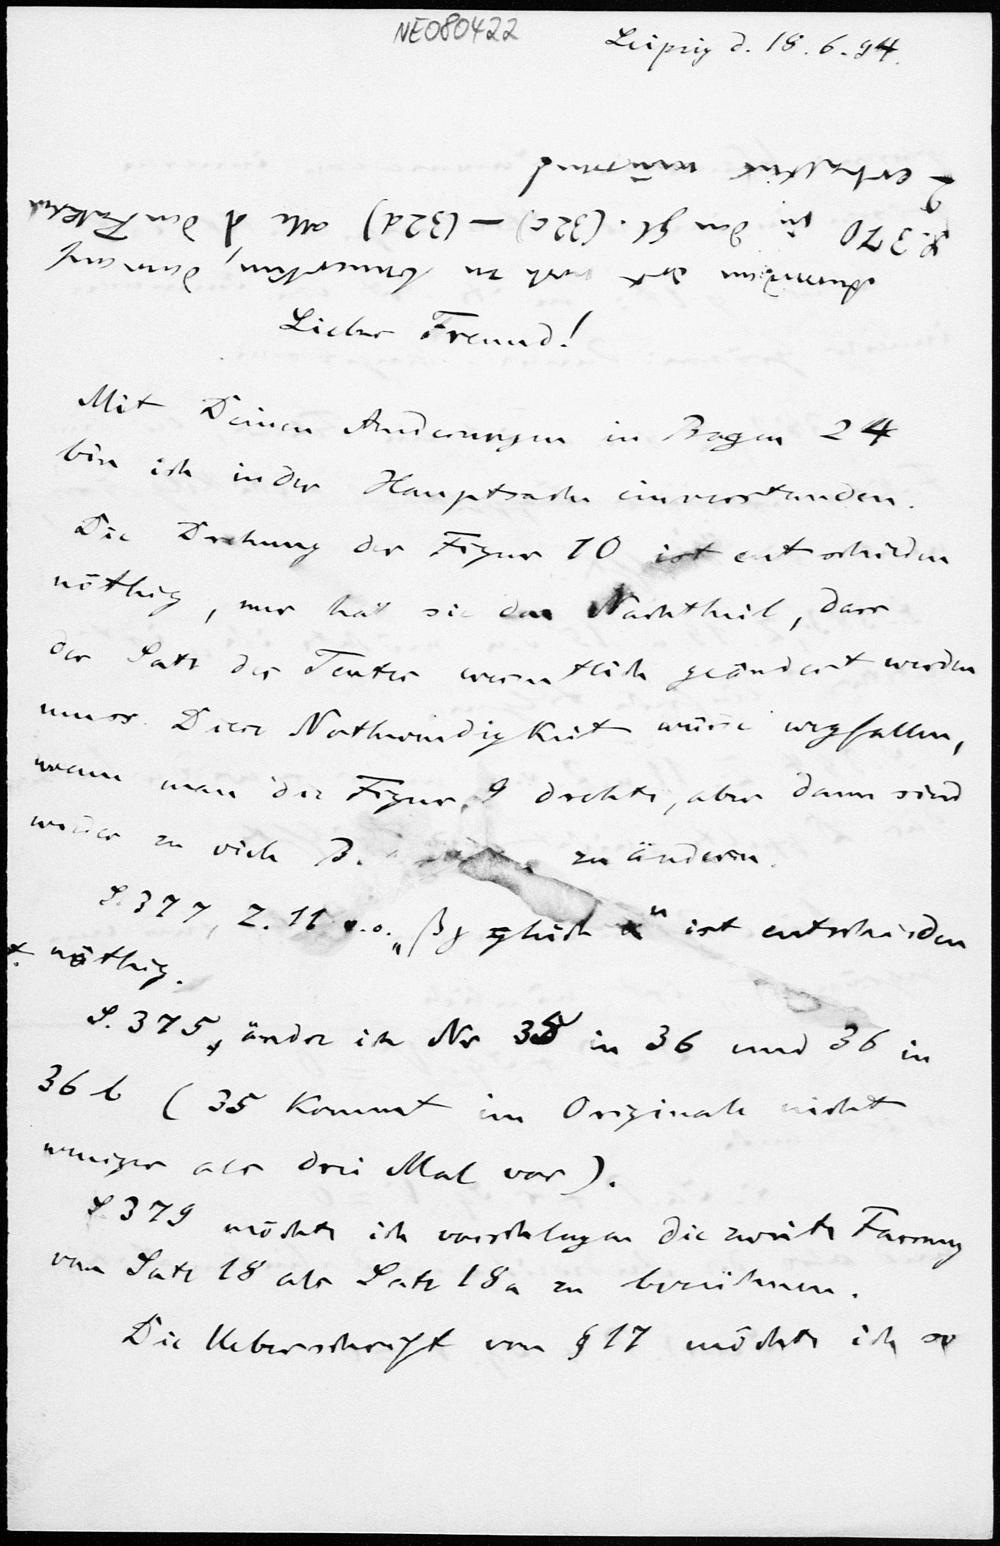 NE080422
Leipzig d. 18.6.94.
Ausserdem ist noch zu bemerken, dass auf
S. 370 in den Gl. (32c) – (32d) alle λ den Faktor
2 erhalten müssen
Lieber Freund!
Mit Deinen Änderungen in Bogen 24
bin ich in der Hauptsache einverstanden.
Die Drehung der Figur 10 ist entschieden
nöthig, nur hat sie den Nachtheil, dass
der Satz des Textes wesentlich geändert werden
muss. Diese Nothwendigkeit würde wegfallen,
wenn man die Figur 9 drehte, aber dann sind
wieder zu viele B. zu ändern.
S. 377, Z. 11 v.o. „βγ gleich α" ist entschieden
nöthig.
S. 375, ändre ich Nr 35 in 36 und 36 in
36 b (35 kommt im Originale nicht
weniger als drei Mal vor).
S. 379 möchte ich vorschlagen die zweite Fassung
von Satz 18 als Satz 18a zu bezeichnen.
Die Ueberschrift von § 17 möchte ich so